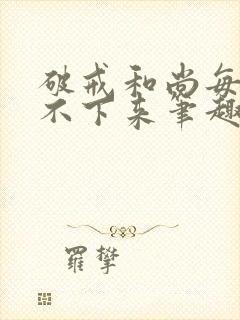 破戒和尚每
不下来笔趣
羅攀